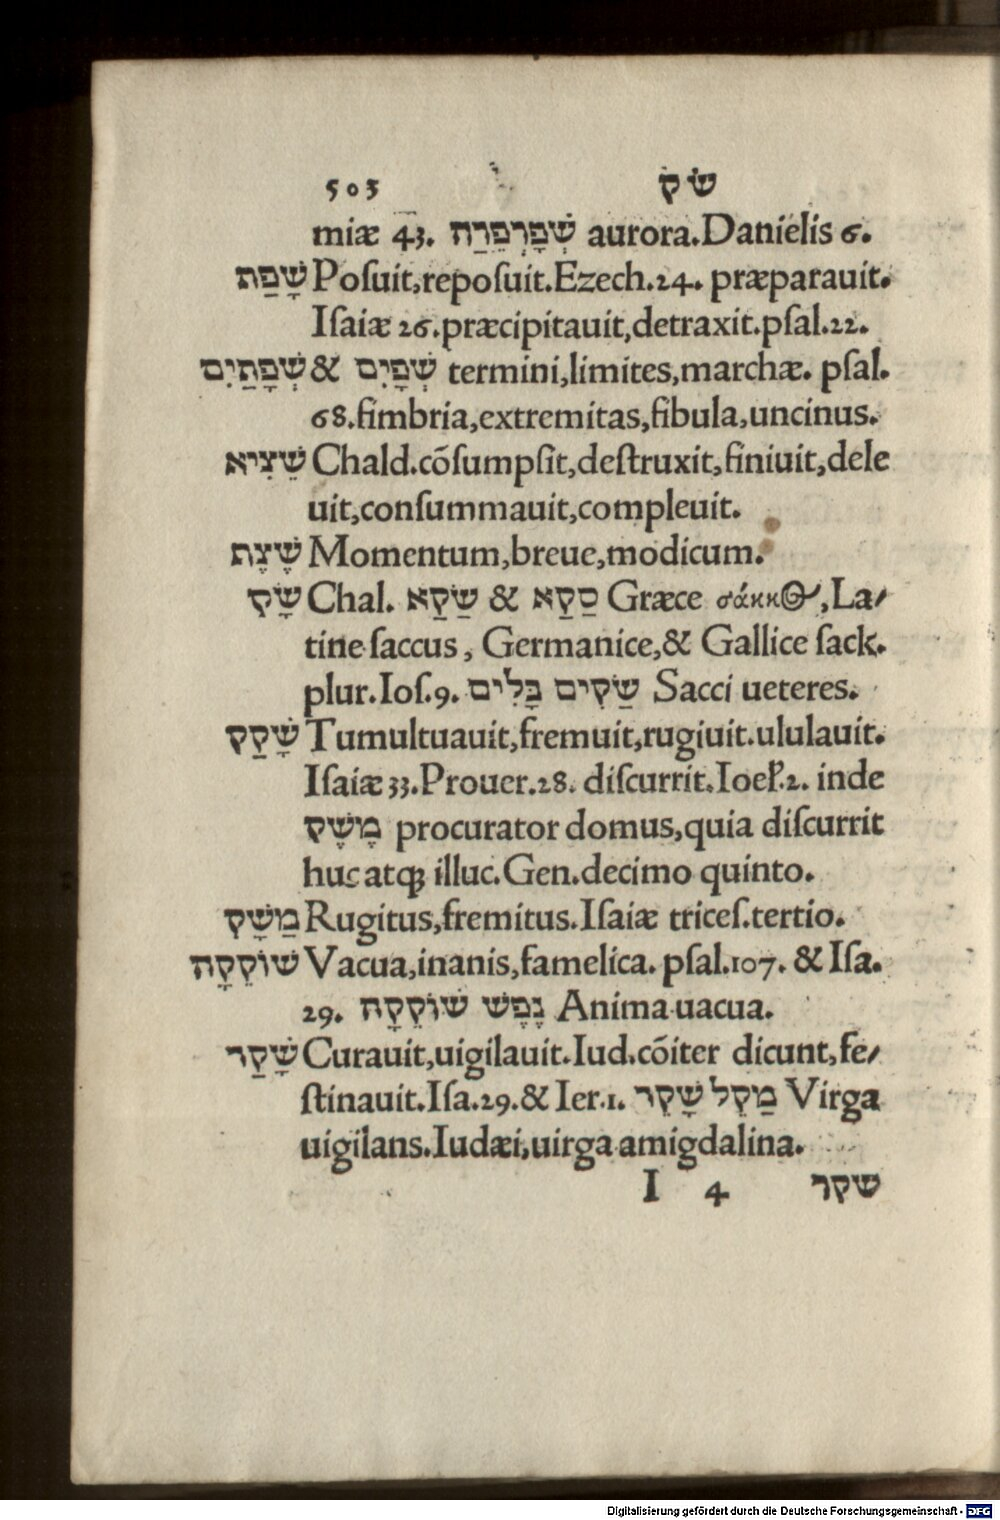 503 שׂק
miæ 43. שְׁפָרְפֵרַח aurora.Danielis 6.
שָׁפַת Poſuit,repoſuit.Ezech.24. præparauit.
Iſaiæ 26.præcipitauit,detraxit.pſal.22.
שְׁפָתַיִם & שְׁפָיִם termini,limites,marchæ. pſal.
68.fimbria,extremitas,fibula,uncinus.
שֵׁצִיא Chald.cōſumpſit,deſtruxit,finiuit,dele
uit,conſummauit,compleuit.
שֶׁצֶת Momentum,breue,modicum.
שָׂק Chal. שַׂקָא & סַקָא Græce σάκκος,La/
tine ſaccus, Germanice,& Gallice ſack.
plur.Ioſ.9. שַׂקִים בָּלִים Sacci ueteres.
שָׁקַק Tumultuauit,fremuit,rugiuit.ululauit.
Iſaiæ 33.Prouer.28. diſcurrit.Ioel.2. inde
מֶשֶׁק procurator domus,quia diſcurrit
huc atqꝫ illuc.Gen.decimo quinto.
מַשָּׁק Rugitus,fremitus.Iſaiæ triceſ.tertio.
שׁוֹקֵקָה Vacua,inanis,famelica. pſal.107. & Iſa.
29. נֶפֶשׁ שׁוֹקֵקָה Anima uacua.
שָׁקַר Curauit,uigilauit.Iud.cōiter dicunt,fe/
ſtinauit.Iſa.29.& Ier.1. מַקֵל שָׁקֵר Virga
uigilans.Iudæi,uirga amigdalina.
I 4 שקר
Digitalisierung gefördert durch die Deutsche Forschungsgemeinschaft - DFG